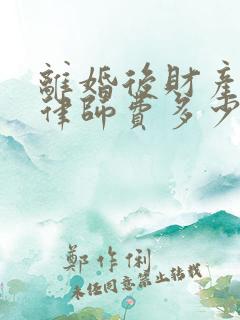 離婚後財產
律師費多少
鄭作俐
未經同意禁止轉載